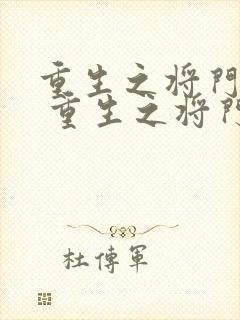 重生之将門
重生之将門
杜傳軍